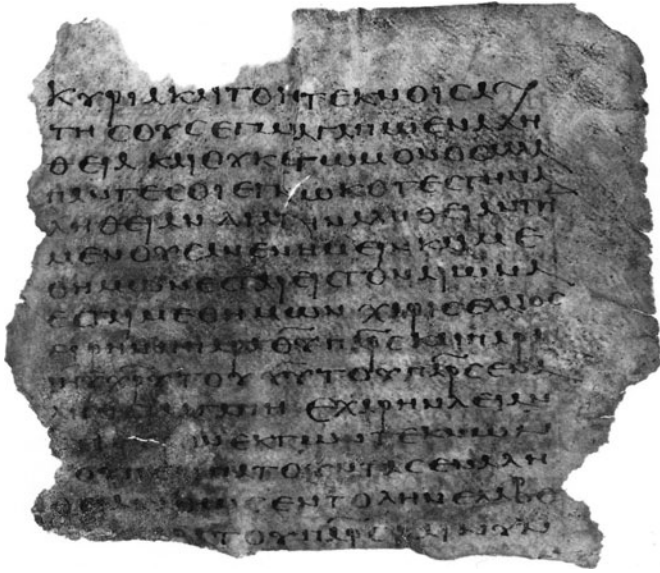 ΚΥΡΙΑ ΚΑΙ ΤΟΙϹ ΤΕΚΝΟΙϹ ΑΥ
ΤΗϹ ΟΥϹ ΕΓΩ ΑΓΑΠΩ ΕΝ ΑΛΗ
ΘΕΙΑ ΚΑΙ ΟΥΚ ΕΓΩ ΜΟΝΟϹ ΑΛΛΑ
ΠΑΝΤΕϹ ΟΙ ΕΓΝΩΚΟΤΕϹ ΤΗΝ Α
ΛΗΘΕΙΑΝ ΔΙΑ ΤΗΝ ΑΛΗΘΕΙΑΝ ΤΗ
ΜΕΝΟΥϹΑΝ ΕΝ ΗΜΕΙΝ ΚΑΙ ΜΕ
Θ ΗΜΩΝ ΕϹΤΑΙ ΕΙϹ ΤΟΝ ΑΙΩΝΑ
ΕϹΤΑΙ ΜΕΘ ΗΜΩΝ ΧΑΡΙϹ ΕΛΑΙΟϹ
ΕΙΡΗΝΗ ΠΑΡΑ Θ̅Υ̅ Π̅Ρ̅Ϲ̅ ΚΑΙ ΠΑΡΑ
Ι̅Η̅Υ̅ Χ̅Ρ̅Υ̅ ΤΟΥ Υ̅Υ̅ ΤΟΥ Π̅Ρ̅Ϲ̅ ΕΝ Α
ΛΗΘΕΙΑ ΚΑΙ ΑΓΑΠΗ ΕΧΑΡΗΝ ΛΕΙΑΝ
ΕΚ ΤΩΝ ΤΕΚΝΩΝ
ΟΥ ΠΕΡΙΠΑΤΟΥΝΤΑϹ ΕΝ ΑΛΗ
ΘΕΙΑ ΚΑΘΩϹ ΕΝΤΟΛΗΝ ΕΛΑΒΟ
ΤΟΥ Π̅Ρ̅Ϲ̅ ΚΑΙ ΝΥΝ